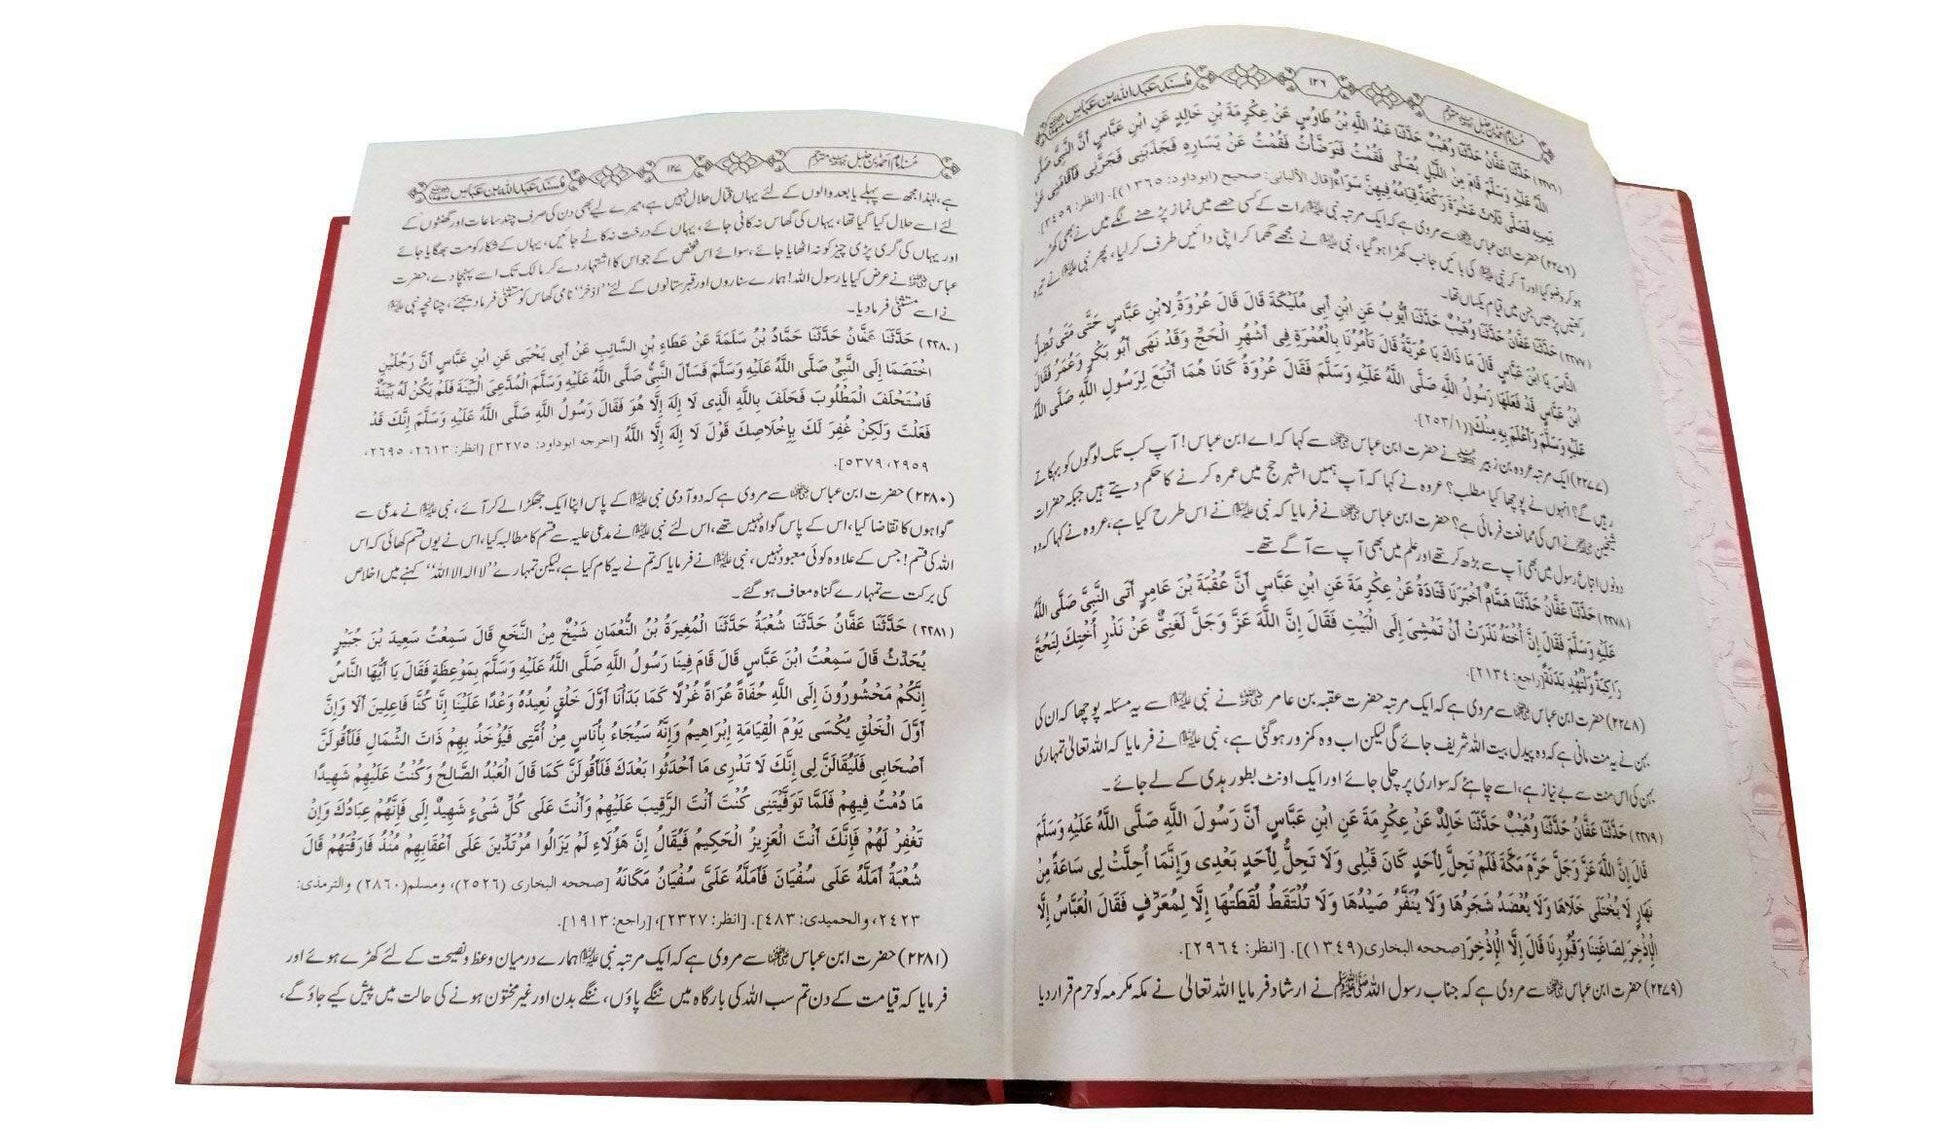 مُسنَد عَبد الله بن عَبّاس ١٢٦ مُسنَد امام احمد بن حنبل مترجم
(٢٢٧٦) حَدَّثَنَا عَفَّانُ حَدَّثَنَا وُهَيْبٌ حَدَّثَنَا عَبْدُ اللَّهِ بْنُ طَاوُسٍ عَنْ عِكْرِمَةَ بْنِ خَالِدٍ عَنِ ابْنِ عَبَّاسٍ أَنَّ النَّبِيَّ صَلَّى
اللَّهُ عَلَيْهِ وَسَلَّمَ قَامَ مِنْ اللَّيْلِ يُصَلِّي فَقُمْتُ فَتَوَضَّأْتُ فَقُمْتُ عَنْ يَسَارِهِ فَجَذَبَنِي فَجَرَّنِي فَأَقَامَنِي عَنْ
يَمِينِهِ فَصَلَّى ثَلَاثَ عَشْرَةَ رَكْعَةً قِيَامُهُ فِيهِنَّ سَوَاءٌ [قال الألبانى: صحيح (ابوداود: ١٣٦٥)]. [انظر: ٣٤٥٩].
(٢٢٧٦) حضرت ابن عباس ؓ سے مروی ہے کہ ایک مرتبہ نبی ﷺ رات کے کسی حصے میں نماز پڑھنے لگے میں نے بھی کھڑے
ہو کر وضو کیا اور آ کر نبی ﷺ کی بائیں جانب کھڑا ہو گیا، نبی ﷺ نے مجھے گھما کر اپنی دائیں طرف کر لیا، پھر نبی ﷺ نے تیرہ
رکعتیں پڑھیں جن میں قیام یکساں تھا۔
(٢٢٧٧) حَدَّثَنَا عَفَّانُ حَدَّثَنَا وُهَيْبٌ حَدَّثَنَا أَيُّوبُ عَنِ ابْنِ أَبِي مُلَيْكَةَ قَالَ قَالَ عُرْوَةُ لِابْنِ عَبَّاسٍ حَتَّى مَتَى تُضِلُّ
النَّاسَ يَا ابْنَ عَبَّاسٍ قَالَ مَا ذَاكَ يَا عُرَيَّةُ قَالَ تَأْمُرُنَا بِالْعُمْرَةِ فِي أَشْهُرِ الْحَجِّ وَقَدْ نَهَى أَبُو بَكْرٍ وَعُمَرُ فَقَالَ
ابْنُ عَبَّاسٍ قَدْ فَعَلَهَا رَسُولُ اللَّهِ صَلَّى اللَّهُ عَلَيْهِ وَسَلَّمَ فَقَالَ عُرْوَةُ كَانَا هُمَا أَتْبَعَ لِرَسُولِ اللَّهِ صَلَّى اللَّهُ
عَلَيْهِ وَسَلَّمَ وَأَعْلَمَ بِهِ مِنْكَ [(١/٢٥٣)].
(٢٢٧٧) ایک مرتبہ عروہ بن زبیر نے حضرت ابن عباس ؓ سے کہا کہ اے ابن عباس! آپ کب تک لوگوں کو بہکاتے
رہیں گے؟ انہوں نے پوچھا کیا مطلب؟ عروہ نے کہا کہ آپ ہمیں اشہر حج میں عمرہ کرنے کا حکم دیتے ہیں جبکہ حضرات
شیخین ؓ نے اس کی ممانعت فرمائی ہے؟ حضرت ابن عباس ؓ نے فرمایا کہ نبی ﷺ نے اس طرح کیا ہے، عروہ نے کہا کہ وہ
دونوں اتباع رسول میں بھی آپ سے بڑھ کر تھے اور علم میں بھی آپ سے آگے تھے۔
(٢٢٧٨) حَدَّثَنَا عَفَّانُ حَدَّثَنَا هَمَّامٌ أَخْبَرَنَا قَتَادَةُ عَنْ عِكْرِمَةَ عَنِ ابْنِ عَبَّاسٍ أَنَّ عُقْبَةَ بْنَ عَامِرٍ أَتَى النَّبِيَّ صَلَّى اللَّهُ
عَلَيْهِ وَسَلَّمَ فَقَالَ إِنَّ أُخْتَهُ نَذَرَتْ أَنْ تَمْشِيَ إِلَى الْبَيْتِ فَقَالَ إِنَّ اللَّهَ عَزَّ وَجَلَّ لَغَنِيٌّ عَنْ نَذْرِ أُخْتِكَ لِتَحُجَّ
رَاكِبَةً وَلْتُهْدِ بَدَنَةً [راجع: ٢١٣٤].
(٢٢٧٨) حضرت ابن عباس ؓ سے مروی ہے کہ ایک مرتبہ حضرت عقبہ بن عامر ؓ نے نبی ﷺ سے یہ مسئلہ پوچھا کہ ان کی
بہن نے یہ منت مانی ہے کہ وہ پیدل بیت اللہ شریف جائے گی لیکن اب وہ کمزور ہوگئی ہے، نبی ﷺ نے فرمایا کہ اللہ تعالیٰ تمہاری
بہن کی اس منت سے بے نیاز ہے، اسے چاہئے کہ سواری پر چلی جائے اور ایک اونٹ بطور ہدی کے لے جائے۔
(٢٢٧٩) حَدَّثَنَا عَفَّانُ حَدَّثَنَا وُهَيْبٌ حَدَّثَنَا خَالِدٌ عَنْ عِكْرِمَةَ عَنِ ابْنِ عَبَّاسٍ أَنَّ رَسُولَ اللَّهِ صَلَّى اللَّهُ عَلَيْهِ وَسَلَّمَ
قَالَ إِنَّ اللَّهَ عَزَّ وَجَلَّ حَرَّمَ مَكَّةَ فَلَمْ تَحِلَّ لِأَحَدٍ كَانَ قَبْلِي وَلَا تَحِلُّ لِأَحَدٍ بَعْدِي وَإِنَّمَا أُحِلَّتْ لِي سَاعَةً مِنْ
نَهَارٍ لَا يُخْتَلَى خَلَاهَا وَلَا يُعْضَدُ شَجَرُهَا وَلَا يُنَفَّرُ صَيْدُهَا وَلَا تُلْتَقَطُ لُقَطَتُهَا إِلَّا لِمُعَرِّفٍ فَقَالَ الْعَبَّاسُ إِلَّا
الْإِذْخِرَ لِصَاغَتِنَا وَقُبُورِنَا قَالَ إِلَّا الْإِذْخِرَ [صححه البخارى (١٣٤٩)]. [انظر: ٢٩٦٤].
(٢٢٧٩) حضرت ابن عباس ؓ سے مروی ہے کہ جناب رسول اللہ ﷺ نے ارشاد فرمایا اللہ تعالیٰ نے مکہ مکرمہ کو حرم قرار دیا
مُسنَد عَبد الله بن عَبّاس ١٢٧ مُسنَد امام احمد بن حنبل مترجم
ہے، لہٰذا مجھ سے پہلے یا بعد والوں کے لئے یہاں قتال حلال نہیں ہے، میرے لیے بھی دن کی صرف چند ساعات اور گھنٹوں کے
لئے اسے حلال کیا گیا تھا، یہاں کی گھاس نہ کاٹی جائے، یہاں کے درخت نہ کاٹے جائیں، یہاں کے شکار کو مت بھگایا جائے
اور یہاں کی گری پڑی چیز کو نہ اٹھایا جائے، سوائے اس شخص کے جو اس کا اشتہار دے کر مالک تک اسے پہنچا دے، حضرت
عباس ؓ نے عرض کیا یا رسول اللہ! ہمارے سناروں اور قبرستانوں کے لئے ”اذخر“ نامی گھاس کو مستثنیٰ فرما دیجئے، چنانچہ نبی ﷺ
نے اسے مستثنیٰ فرما دیا۔
(٢٢٨٠) حَدَّثَنَا عَفَّانُ حَدَّثَنَا حَمَّادُ بْنُ سَلَمَةَ عَنْ عَطَاءِ بْنِ السَّائِبِ عَنْ أَبِي يَحْيَى عَنِ ابْنِ عَبَّاسٍ أَنَّ رَجُلَيْنِ
اخْتَصَمَا إِلَى النَّبِيِّ صَلَّى اللَّهُ عَلَيْهِ وَسَلَّمَ فَسَأَلَ النَّبِيُّ صَلَّى اللَّهُ عَلَيْهِ وَسَلَّمَ الْمُدَّعِيَ الْبَيِّنَةَ فَلَمْ يَكُنْ لَهُ بَيِّنَةٌ
فَاسْتَحْلَفَ الْمَطْلُوبَ فَحَلَفَ بِاللَّهِ الَّذِي لَا إِلَهَ إِلَّا هُوَ فَقَالَ رَسُولُ اللَّهِ صَلَّى اللَّهُ عَلَيْهِ وَسَلَّمَ إِنَّكَ قَدْ
فَعَلْتَ وَلَكِنْ غُفِرَ لَكَ بِإِخْلَاصِكَ قَوْلَ لَا إِلَهَ إِلَّا اللَّهُ [اخرجه ابوداود: ٣٢٧٥] [انظر: ٢٦١٣، ٢٦٩٥،
٢٩٥٩، ٥٣٧٩].
(٢٢٨٠) حضرت ابن عباس ؓ سے مروی ہے کہ دو آدمی نبی ﷺ کے پاس اپنا ایک جھگڑا لے کر آئے، نبی ﷺ نے مدعی سے
گواہوں کا تقاضا کیا، اس کے پاس گواہ نہیں تھے، اس لئے نبی ﷺ نے مدعی علیہ سے قسم کا مطالبہ کیا، اس نے یوں قسم کھائی کہ اس
اللہ کی قسم! جس کے علاوہ کوئی معبود نہیں، نبی ﷺ نے فرمایا کہ تم نے یہ کام کیا ہے، لیکن تمہارے ”لا الہ الا اللہ“ کہنے میں اخلاص
کی برکت سے تمہارے گناہ معاف ہو گئے۔
(٢٢٨١) حَدَّثَنَا عَفَّانُ حَدَّثَنَا شُعْبَةُ حَدَّثَنَا الْمُغِيرَةُ بْنُ النُّعْمَانِ شَيْخٌ مِنْ النَّخَعِ قَالَ سَمِعْتُ سَعِيدَ بْنَ جُبَيْرٍ
يُحَدِّثُ قَالَ سَمِعْتُ ابْنَ عَبَّاسٍ قَالَ قَامَ فِينَا رَسُولُ اللَّهِ صَلَّى اللَّهُ عَلَيْهِ وَسَلَّمَ بِمَوْعِظَةٍ فَقَالَ يَا أَيُّهَا النَّاسُ
إِنَّكُمْ مَحْشُورُونَ إِلَى اللَّهِ حُفَاةً عُرَاةً غُرْلًا كَمَا بَدَأْنَا أَوَّلَ خَلْقٍ نُعِيدُهُ وَعْدًا عَلَيْنَا إِنَّا كُنَّا فَاعِلِينَ أَلَا وَإِنَّ
أَوَّلَ الْخَلْقِ يُكْسَى يَوْمَ الْقِيَامَةِ إِبْرَاهِيمُ وَإِنَّهُ سَيُجَاءُ بِأُنَاسٍ مِنْ أُمَّتِي فَيُؤْخَذُ بِهِمْ ذَاتَ الشِّمَالِ فَلَأَقُولَنَّ
أَصْحَابِي فَلَيُقَالَنَّ لِي إِنَّكَ لَا تَدْرِي مَا أَحْدَثُوا بَعْدَكَ فَلَأَقُولَنَّ كَمَا قَالَ الْعَبْدُ الصَّالِحُ وَكُنْتُ عَلَيْهِمْ شَهِيدًا
مَا دُمْتُ فِيهِمْ فَلَمَّا تَوَفَّيْتَنِي كُنْتَ أَنْتَ الرَّقِيبَ عَلَيْهِمْ وَأَنْتَ عَلَى كُلِّ شَيْءٍ شَهِيدٌ إِلَى فَإِنَّهُمْ عِبَادُكَ وَإِنْ
تَغْفِرْ لَهُمْ فَإِنَّكَ أَنْتَ الْعَزِيزُ الْحَكِيمُ فَيُقَالُ إِنَّ هَؤُلَاءِ لَمْ يَزَالُوا مُرْتَدِّينَ عَلَى أَعْقَابِهِمْ مُنْذُ فَارَقْتَهُمْ قَالَ
شُعْبَةُ أَمَلَّهُ عَلَى سُفْيَانَ فَأَمَلَّهُ عَلَيَّ سُفْيَانُ مَكَانَهُ [صححه البخارى (٢٥٢٦)، ومسلم (٢٨٦٠) والترمذى:
٢٤٢٣، والحميدى: ٤٨٣]. [انظر: ٢٣٢٧]، [راجع: ١٩١٣].
(٢٢٨١) حضرت ابن عباس ؓ سے مروی ہے کہ ایک مرتبہ نبی ﷺ ہمارے درمیان وعظ و نصیحت کے لئے کھڑے ہوئے اور
فرمایا کہ قیامت کے دن تم سب اللہ کی بارگاہ میں ننگے پاؤں، ننگے بدن اور غیر مختون ہونے کی حالت میں پیش کیے جاؤ گے،